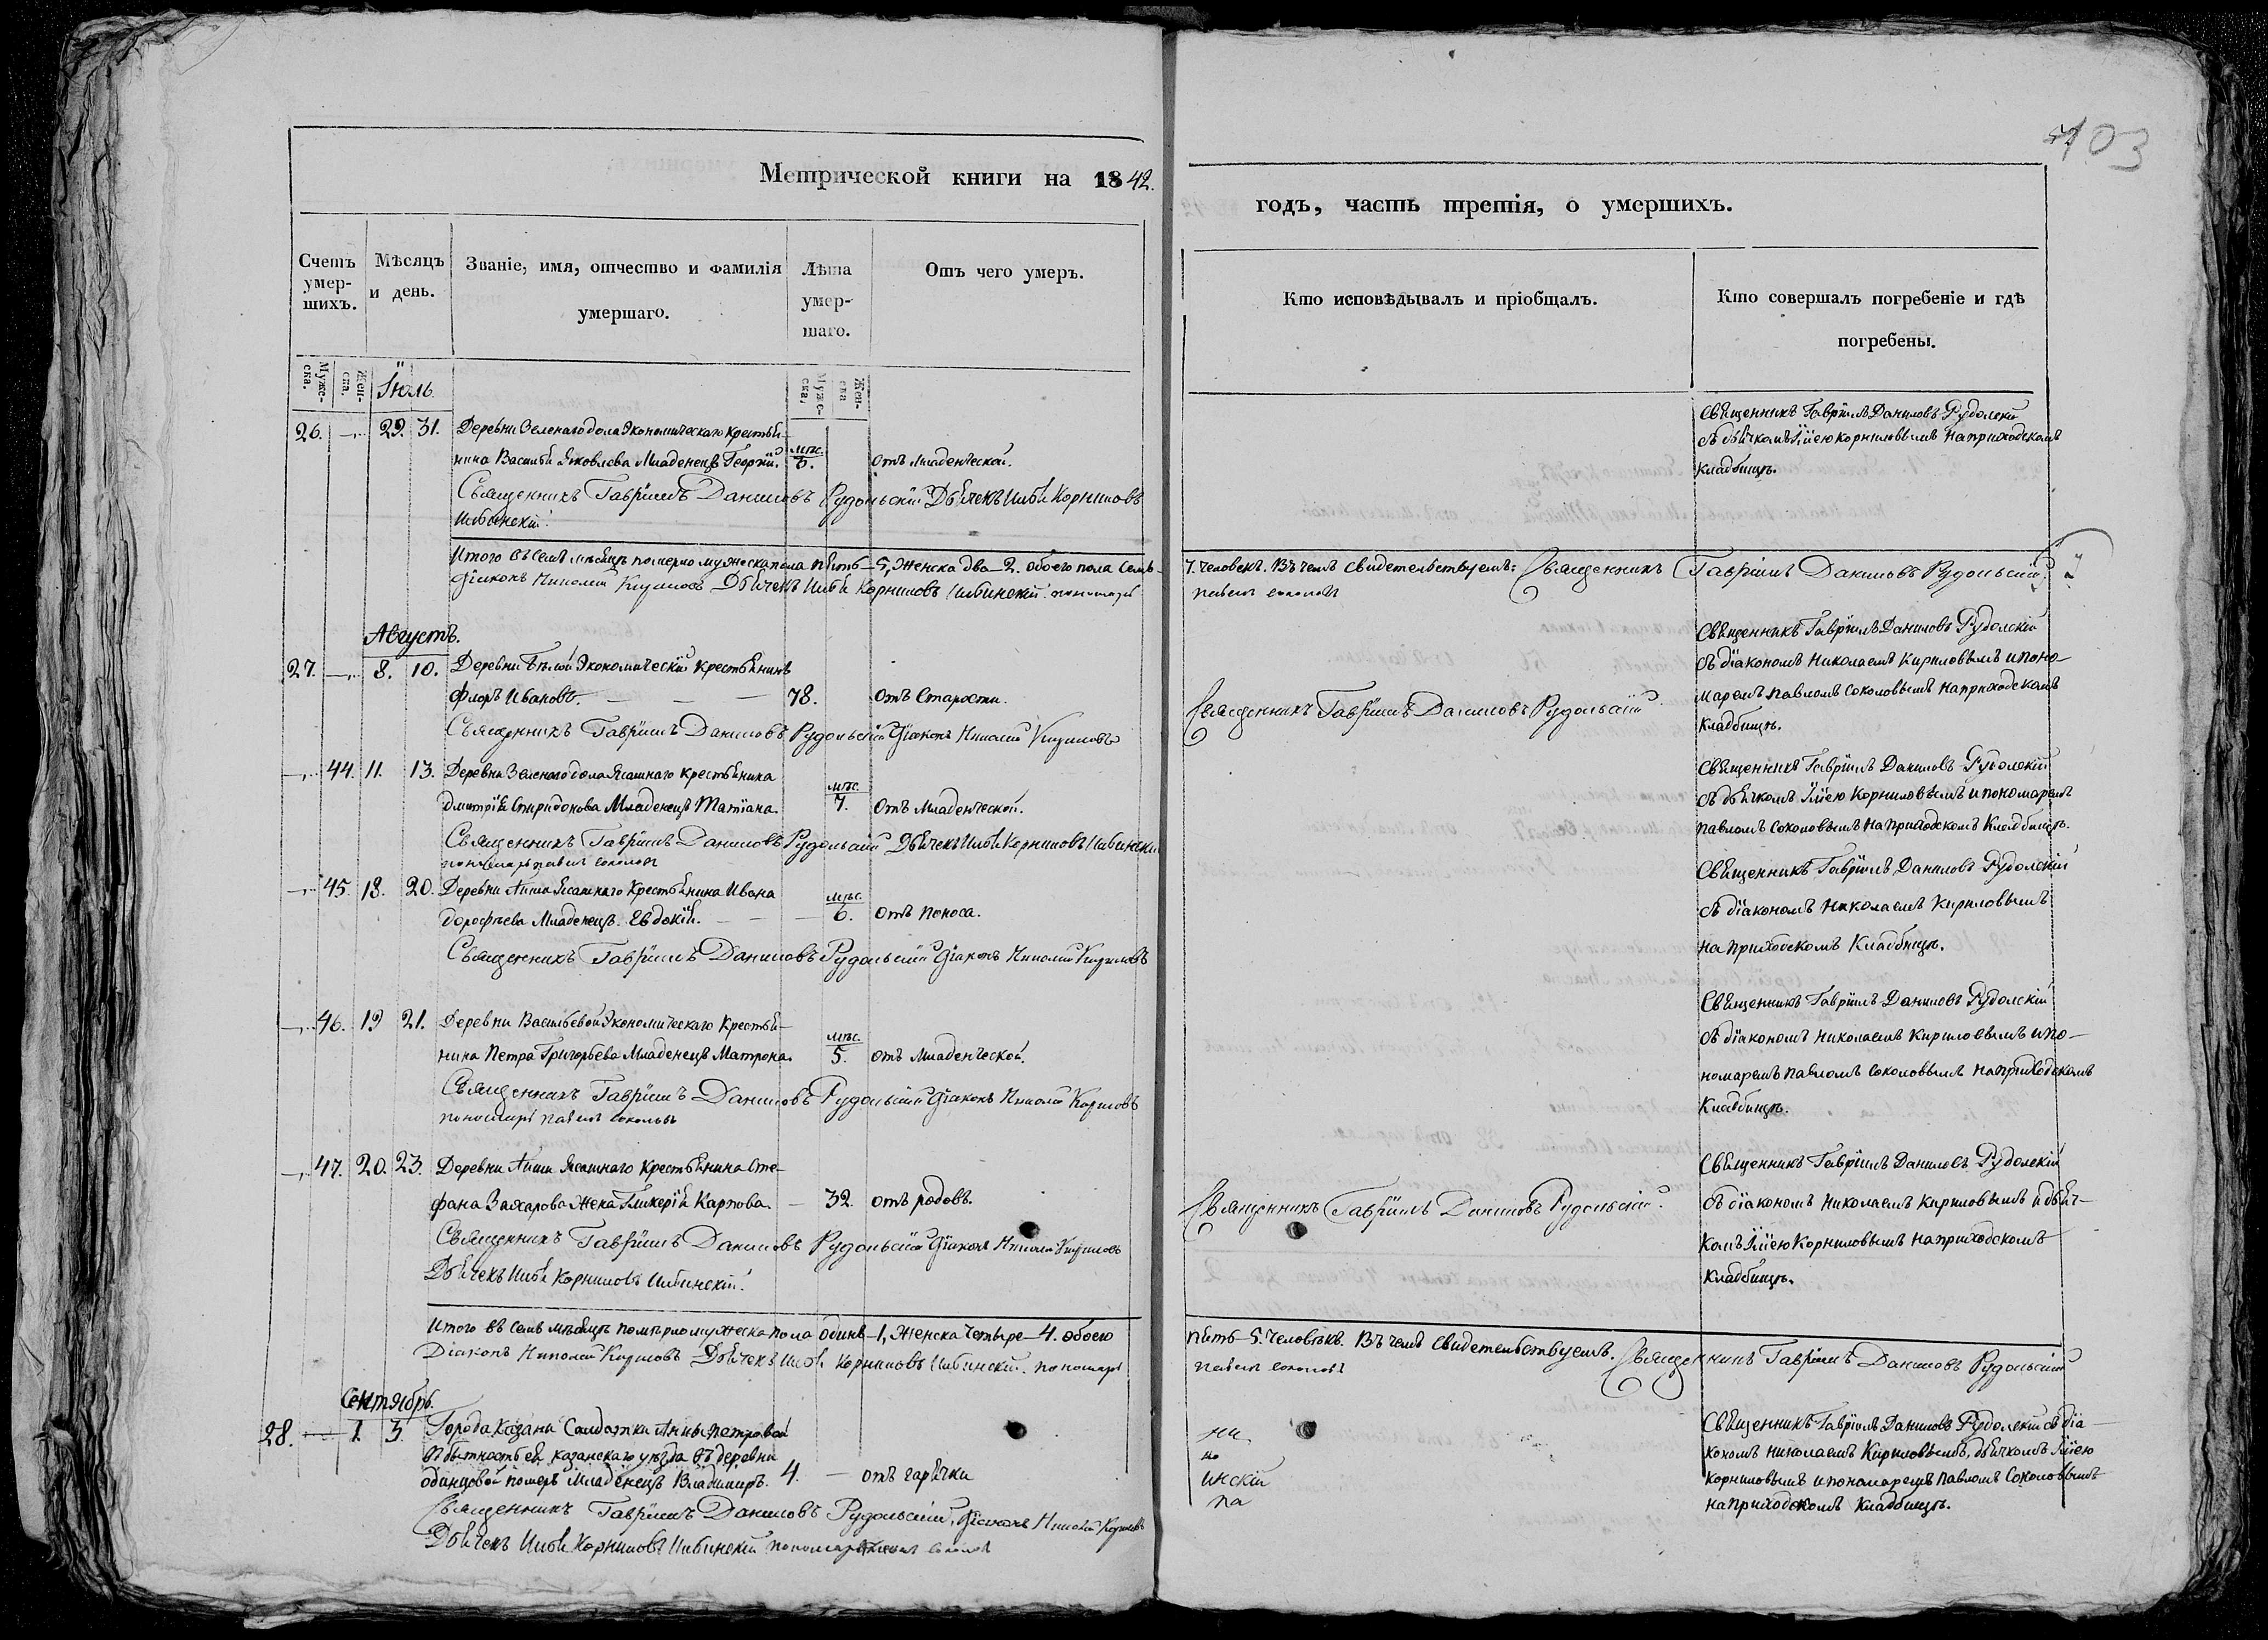 103
Метрической книги на 1842.
годъ, часть третія, о умершихъ.
Счетъ умер-шихъ.
Мѣсяцъ и день.
Званіе, имя, отчество и фамилія умершаго.
Лѣта умер-шаго.
Отъ чего умеръ.
Кто исповѣдывалъ и пріобщалъ.
Кто совершалъ погребеніе и гдѣ погребены.
Мужес-ка.
Жен-ска.
Іюль.
Мужес-ка.
Жен-ска
26. — 29. 31. Деревни Зеленаго дола Экономическаго Крестья-
нина Василья Яковлева Младенецъ Георгій. мѣс. 3. отъ Младенческой.
Священникъ Гавріилъ Даниловъ Рудольскій Дьячекъ Илья Корниловъ
Ильинскій.
Священникъ Гавріилъ Даниловъ Рудолскій
съ дьячкомъ Іліею Корниловымъ на приходскомъ
кладбищѣ.
Итого въ семъ мѣсяцѣ померло мужеска пола пять—5, женска два—2. обоего пола Семь—
7. человекъ. Въ чемъ свидетельствуемъ: Священникъ Гавріилъ Даниловъ Рудольскій
Діаконъ Николай Кириловъ Дьячекъ Илья Корниловъ Ильинскій. пономарь
павелъ соколовъ
Августъ.
27. — 8. 10. Деревни Бѣлой Экономическій Крестьянинъ
Флоръ Ивановъ. — — — 78. отъ Старости.
Священникъ Гавріилъ Даниловъ Рудольскій Діаконъ Николай Кириловъ
Священникъ Гавріилъ Даниловъ Рудольскій
Священникъ Гавріилъ Даниловъ Рудолскій
съ діакономъ Николаемъ Кириловымъ и поно-
маремъ Павломъ Соколовымъ на приходскомъ
Кладбищѣ.
— 44. 11. 13. Деревни Зеленаго дола Ясашнаго Крестьянина
Дмитрія Спиридонова Младенецъ Татіана. мѣс. 7. отъ Младенческой.
Священникъ Гавріилъ Даниловъ Рудольскій Дьячекъ Илья Корниловъ Ильински
пономарь павелъ соколовъ
Священникъ Гавріилъ Даниловъ Рудолскій
съ дьячкомъ Іліею Корниловымъ и пономаремъ
Павломъ Соколовымъ на Приходскомъ Кладбищѣ.
— 45. 18. 20. Деревни Аиши Ясашнаго Крестьянина Ивана
Дорофѣева Младенецъ Евдокія. — — — мѣс. 6. отъ Поноса.
Священникъ Гавріилъ Даниловъ Рудольскій Діаконъ Николай Кириловъ
Священникъ Гавріилъ Даниловъ Рудолскій
съ діакономъ Николаемъ Кириловымъ
на Приходскомъ Кладбищѣ.
— 46. 19 21. Деревни Васильевой Экономическаго Крестья-
нина Петра Григорьева Младенецъ Матрона. мѣс. 5. отъ Младенческой.
Священникъ Гавріилъ Даниловъ Рудольскій Діаконъ Николай Кириловъ
пономарь павелъ соколовъ
Священникъ Гавріилъ Даниловъ Рудолскій
съ діакономъ Николаемъ Кириловымъ и по-
номаремъ Павломъ Соколовымъ на приходскомъ
Кладбищѣ.
— 47. 20. 23. Деревни Аиши Ясашнаго Крестьянина Сте-
фана Захарова Жена Гликерія Карпова. — 32. отъ родовъ.
Священникъ Гавріилъ Даниловъ Рудольскій Діаконъ Николай Кириловъ
Дьячекъ Илья Корниловъ Ильинскій.
Священникъ Гавріилъ Даниловъ Рудольскій.
Священникъ Гавріилъ Даниловъ Рудолскій
съ діакономъ Николаемъ Кириловымъ и дьяч-
комъ Іліею Корниловымъ на приходскомъ
Кладбищѣ.
Итого въ семъ мѣсяцѣ померло мужеска пола одинъ—1, женска Четыре—4. обоего
пять—5. Человѣкъ. Въ чемъ свидетельствуемъ. Священникъ Гавріилъ Даниловъ Рудольскій
Діаконъ Николай Кириловъ Дьячекъ Илья Корниловъ Ильинскій. пономарь
павелъ соколовъ
Сентябрь.
28. — 1. 3. Города Казани Салдатки Анны Петровой
въ бытность ея казанскаго уѣзда въ деревни
одинцовой померъ Младенецъ Владимиръ. 4. — отъ гарячки
Священникъ Гавріилъ Даниловъ Рудольскій, Діаконъ Николай Кириловъ
Дьячекъ Илья Корниловъ Ильинскій пономарь павелъ соколов
ни
но
инскій
па
Священникъ Гавріилъ Даниловъ Рудолскій съ діа-
кономъ Николаемъ Кириловымъ, дьячкомъ Іліею
Корниловымъ и пономаремъ Павломъ Соколовымъ
на приходскомъ Кладбищѣ.